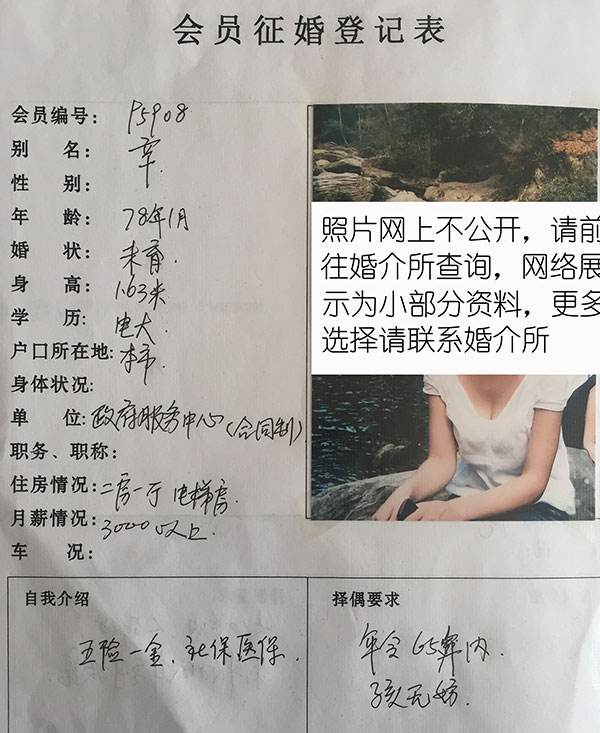 会员征婚登记表
会员编号： P5908
别 名：
性 别：
年 龄： 78年1月
婚 状： 未育.
身 高： 1.63米
学 历： 电大
户口所在地： 本市.
身体状况：
单 位： 政府服务中心（合同制）
职务、职称：
住房情况： 二房一厅 电梯房.
月薪情况： 3000以上.
车 况：
照片网上不公开，请前
往婚介所查询，网络展
示为小部分资料，更多
选择请联系婚介所
自我介绍
五险一金、社保医保.
择偶要求
年令65年内.
孩无妨.